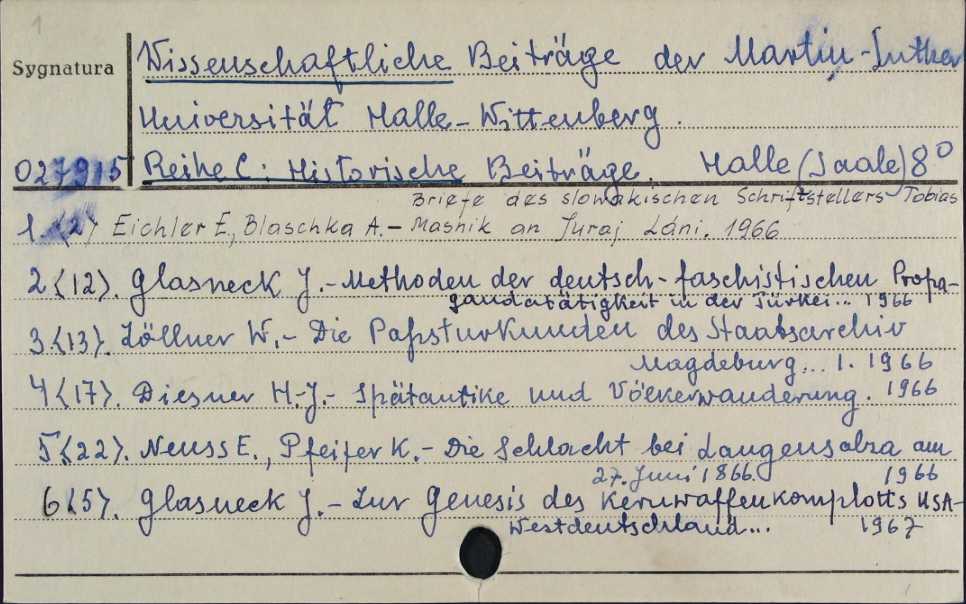 1
Wissenschaftliche Beiträge der Martin-Luther
Sygnatura
Universität Halle-Wittenberg.
027915 Reihe C: Historische Beiträge. Halle (Saale) 8°
Briefe des slowakischen Schriftstellers Tobias
1. <2> Eichler E., Blaschka A. - Masnik an Juraj Láni. 1966
2 <12>. Glasneck J. - Methoden der deutsch-faschistischen Propa-
gandatätigkeit in der Türkei... 1966
3 <13>. Zöllner W. - Die Papsturkunden des Staatsarchiv
Magdeburg... 1. 1966
4 <17>. Diesner H.-J. - Spätantike und Völkerwanderung. 1966
5 <22>. Neuss E., Pfeifer K. - Die Schlacht bei Langensalza am
27. Juni 1866. 1966
6 <5>. Glasneck J. - Zur Genesis des Kernwaffenkomplotts USA-
Westdeutschland... 1967